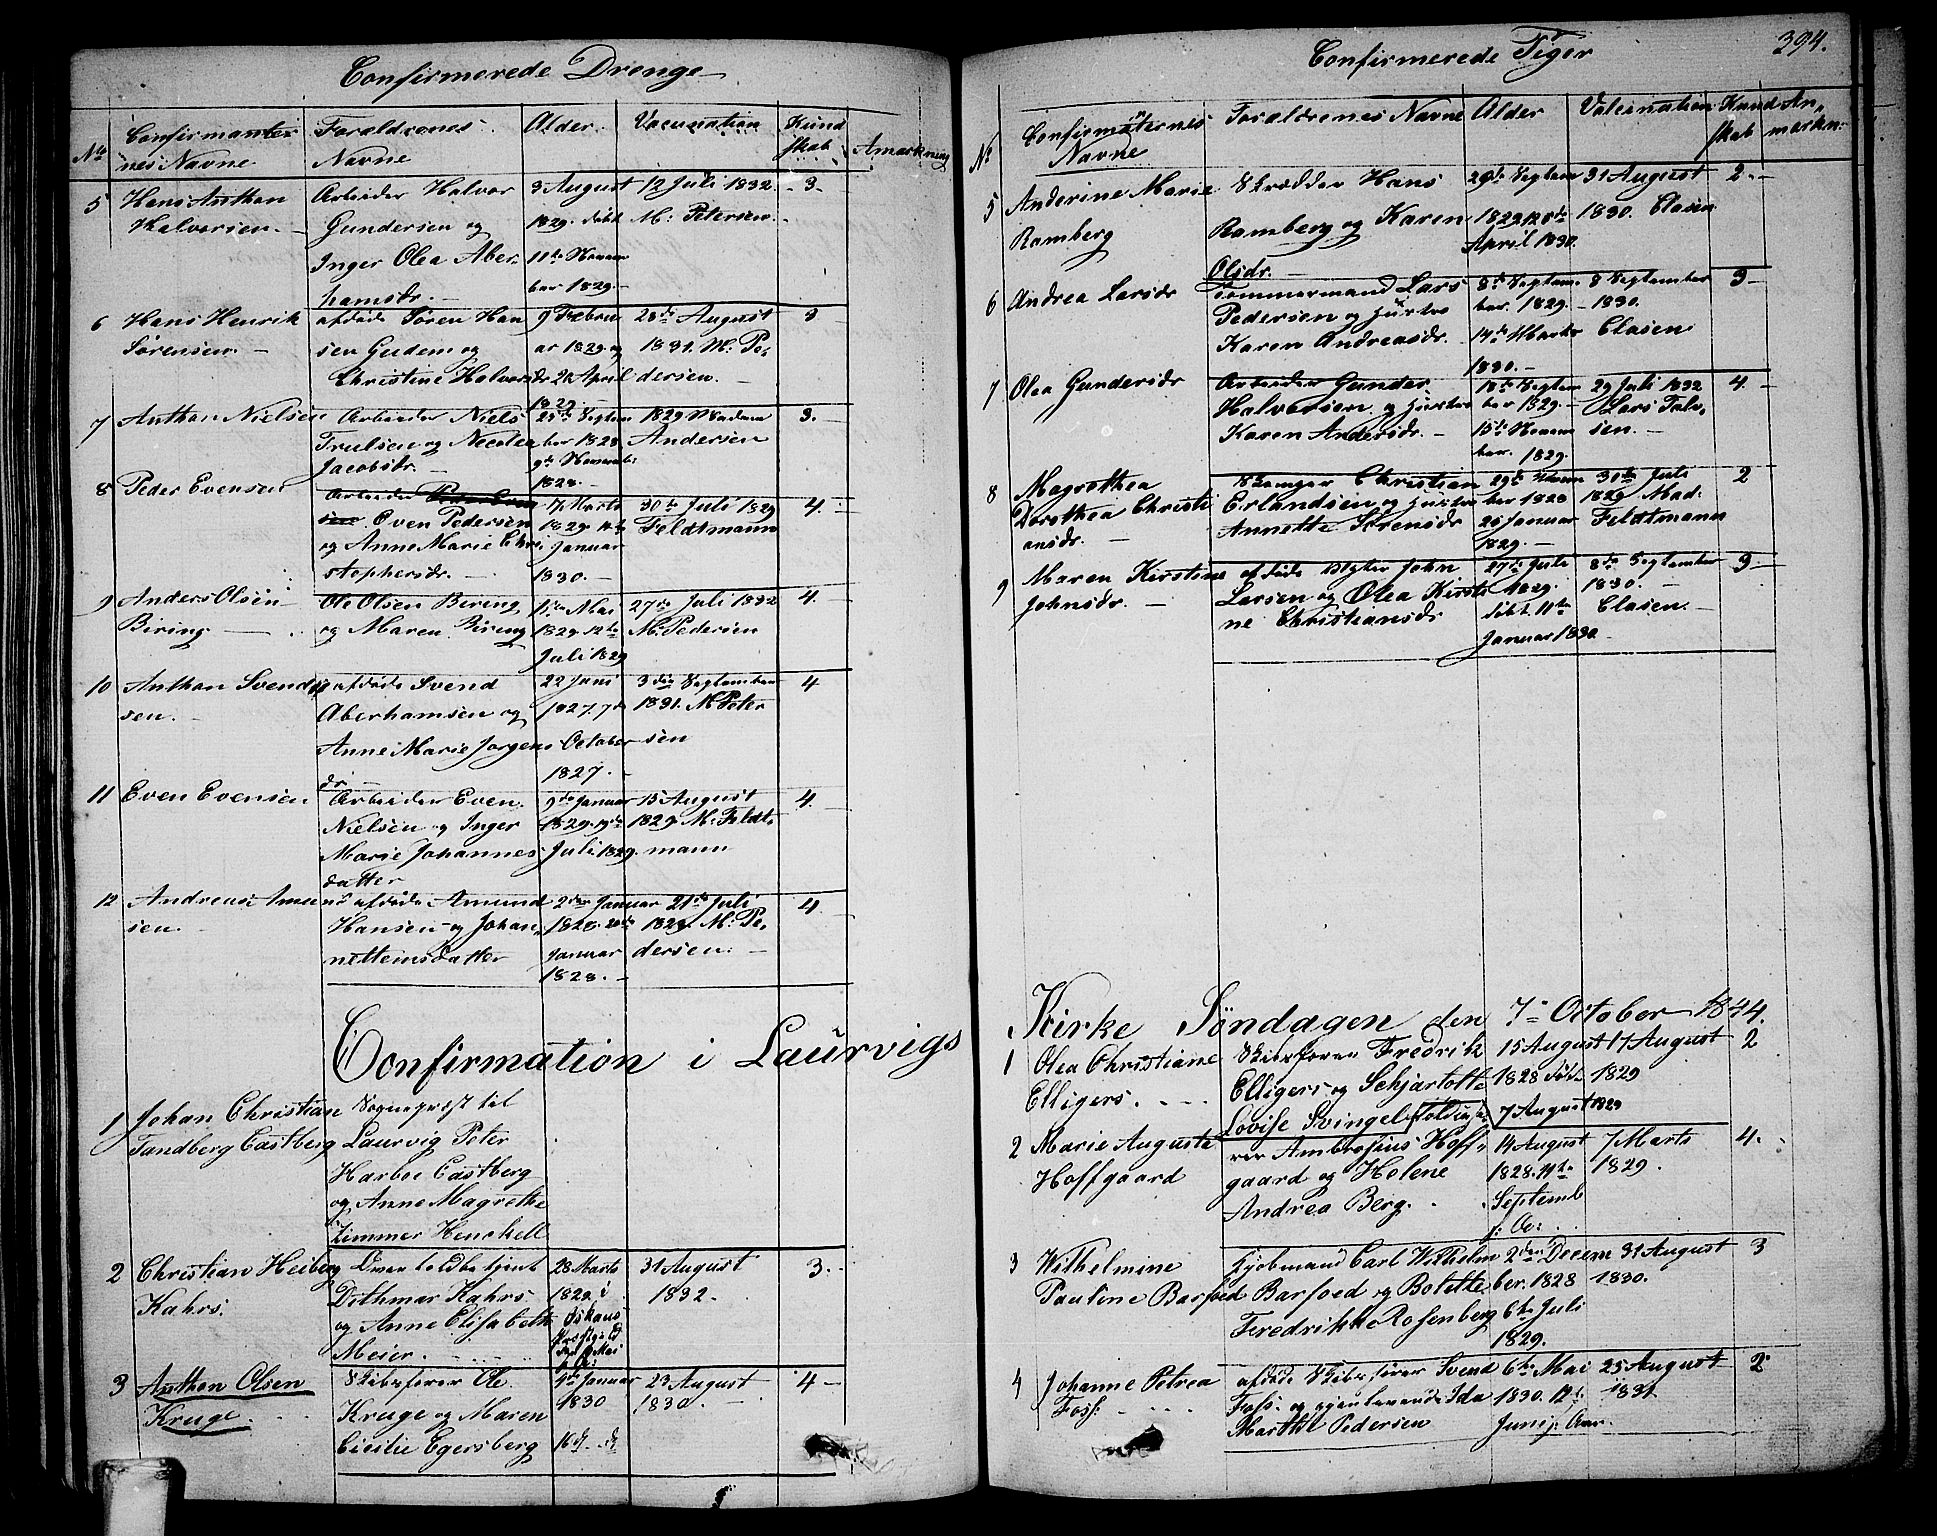 Confirmerede Drenge
No Confirmanter nes Navne Foraldrenes Navne Alder. Vaccination Kund skab Amarkning
5 Hans Anthon Halvorsen. Arbeider Halvor 3 August 12 Juli 1832. 3.
Gundersen og 1829. døbt M. Petersen.
Inger Olea Aber- 11te Novem
hamsdr. ber 1829.
6 Hans Henrik afdøde Søren Han 9 Febru 28de August 3
Sørensen. sen Gudem og ar 1829 og 1831. M. Pe-
Christine Halvorsdr 2 April dersen.
1829.
7 Anthon Nielsen Arbeider Niels 25de Septem 1829 Madam 3.
Trulsen og Nicolea ber 1828 Andersen
Jacobsdr. 9de Novemb:
1828.
8 Peder Evensen Arbeider 7 Marts 30te Juli 1829 4.
Even Pedersen 1829 Feldtmann
og Anne Marie Chri Januar
stophersdr. 1830.
9 Anders Olsen Ole Olsen Biring Mai 27de Juli 1832 4.
Biring og Maren Biring 1829. 12te M. Pedersen
Juli 1829
10 Anthon Svend afdøde Svend 22 Juni 3die September 4
sen. Aberhamsen og 1827. 7de 1831. M. Peter
Anne Marie Jorgens October sen
dr 1827.
11 Even Evensen Arbeider Even 9de Januar 15 August 4.
Nielsen og Inger 1829. 19de 1829 M. Feldt-
Marie Johannes Juli 1829. mann
datter
12 Andreas Amund afdøde Amund 2den Januar 21de Juli 4
sen. Hansen og Johan- 1828. 1829. M. Pe-
datter Januar dersen.
1828.
Confirmation i Laurvigs
1 Johan Christian Sognepræst til
Tandberg Castberg Laurvig Peter
Harboe Castberg
og Anne Magrethe
Zimmer Henckell
2 Christian Heiberg Overtoldbetjent 28 Marts 31 August 3.
Kahrs. Dithmar Kahrs 1829 i 1832.
og Anne Elisabeth
Meier.
3 Anthon Olsen Skibsfører Ole Januar 23 August 4
Kruge. Kruge og Maren 1830 1830.
Cicilie Egersberg
Confirmerede Piger 394.
No Confirmaternes Navne Foraldrenes Navne Alder Vaccination Kund skab An- markn:
5 Anderine Marie Skrædder Hans 29de Septem 31 August 2.
Ramberg Ramberg og Karen 1829 1830. Clasen
Olsdr. April 1830.
6 Andrea Larsdr Tømmermand Lars 8de Septem 8 September 3
Pedersen og Hustru ber. 1829. 1830.
Karen Andreasdr. 14de Marts Clasen
1830.
7 Olea Gundersdr Arbeider Gunder 18de Septem 29 Juli 1832 4.
Halvorsen og Hustru ber 1829. Lars Tol-
Karen Andersdr. 15de Novem sen.
ber. 1829.
8 Magrethea Christian 29de 30te Juli 2
Dorothea Christi Erlandsen og Hustru ber 1828 1829 Mad.
ansdr. Annette Sørensdr 26 Januar Feldtmann
1829.
9 Maren Kirstine afdøde John 27de Juli 8de September 3
Johnsdr. Larsen og Olea Kirsti 1829. 1830.
ne Christiansdr døbt. 11te Clasen.
Januar 1830.
Kirke Søndagen den 7de October 1844.
1 Olea Christiane Skibsfører Fredrik 15 August 17 August 2
Elligers. Elligers og Schjartotte 1828 1829
Lovise Svingel 7 August 1829
2 Marie Augusta Ambrosius Hoff- 14 August 7 Marts 4.
Hoffgaard gaard og Helene 1828. 1829.
Andrea Berg. Septemb
3 Wilhelmine Kjøbmand Carl Wilhelm 2den Decem 31 August 3
Pauline Barfoed Barfoed og Bolette ber. 1828 1830.
Fredrikke Rosenberg 6te Juli
1829.
4 Johanne Petrea afdøde Skibsfører Svend 6te Mai 25 August 2
Foss. Foss. og gjenlevende Ida 1830. 12te 1831.
Marthe Pedersen Junij